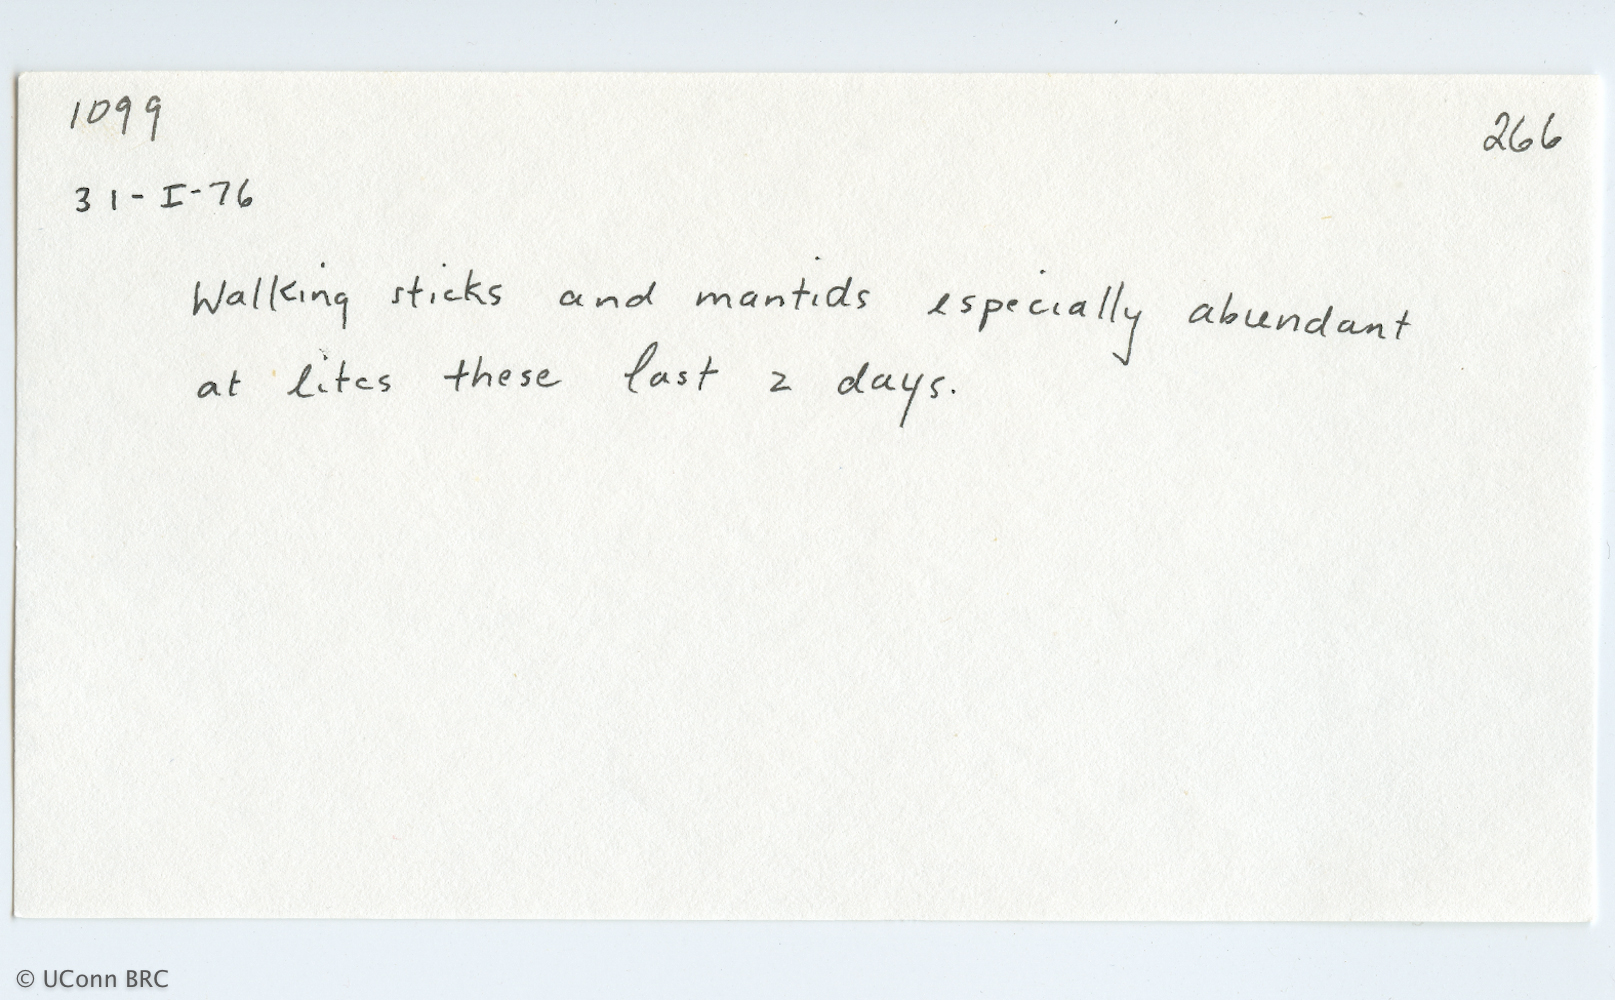 1099
266
31-I-76
Walking sticks and mantids especially abundant
at lites these last 2 days.
© UConn BRC